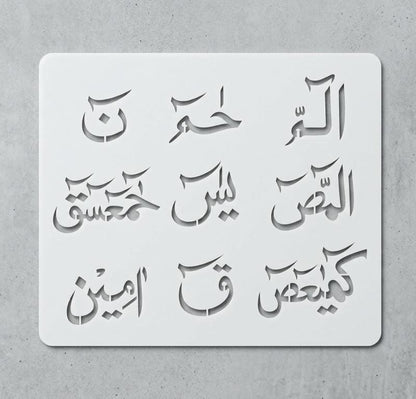 الٓمّ حٰمٓ نٓ
المّٓصٓ يٰسٓ حٰمٓعٓسٓقٓ
كٓهٰيٰعٓصٓ قٓ اٰمِيْن